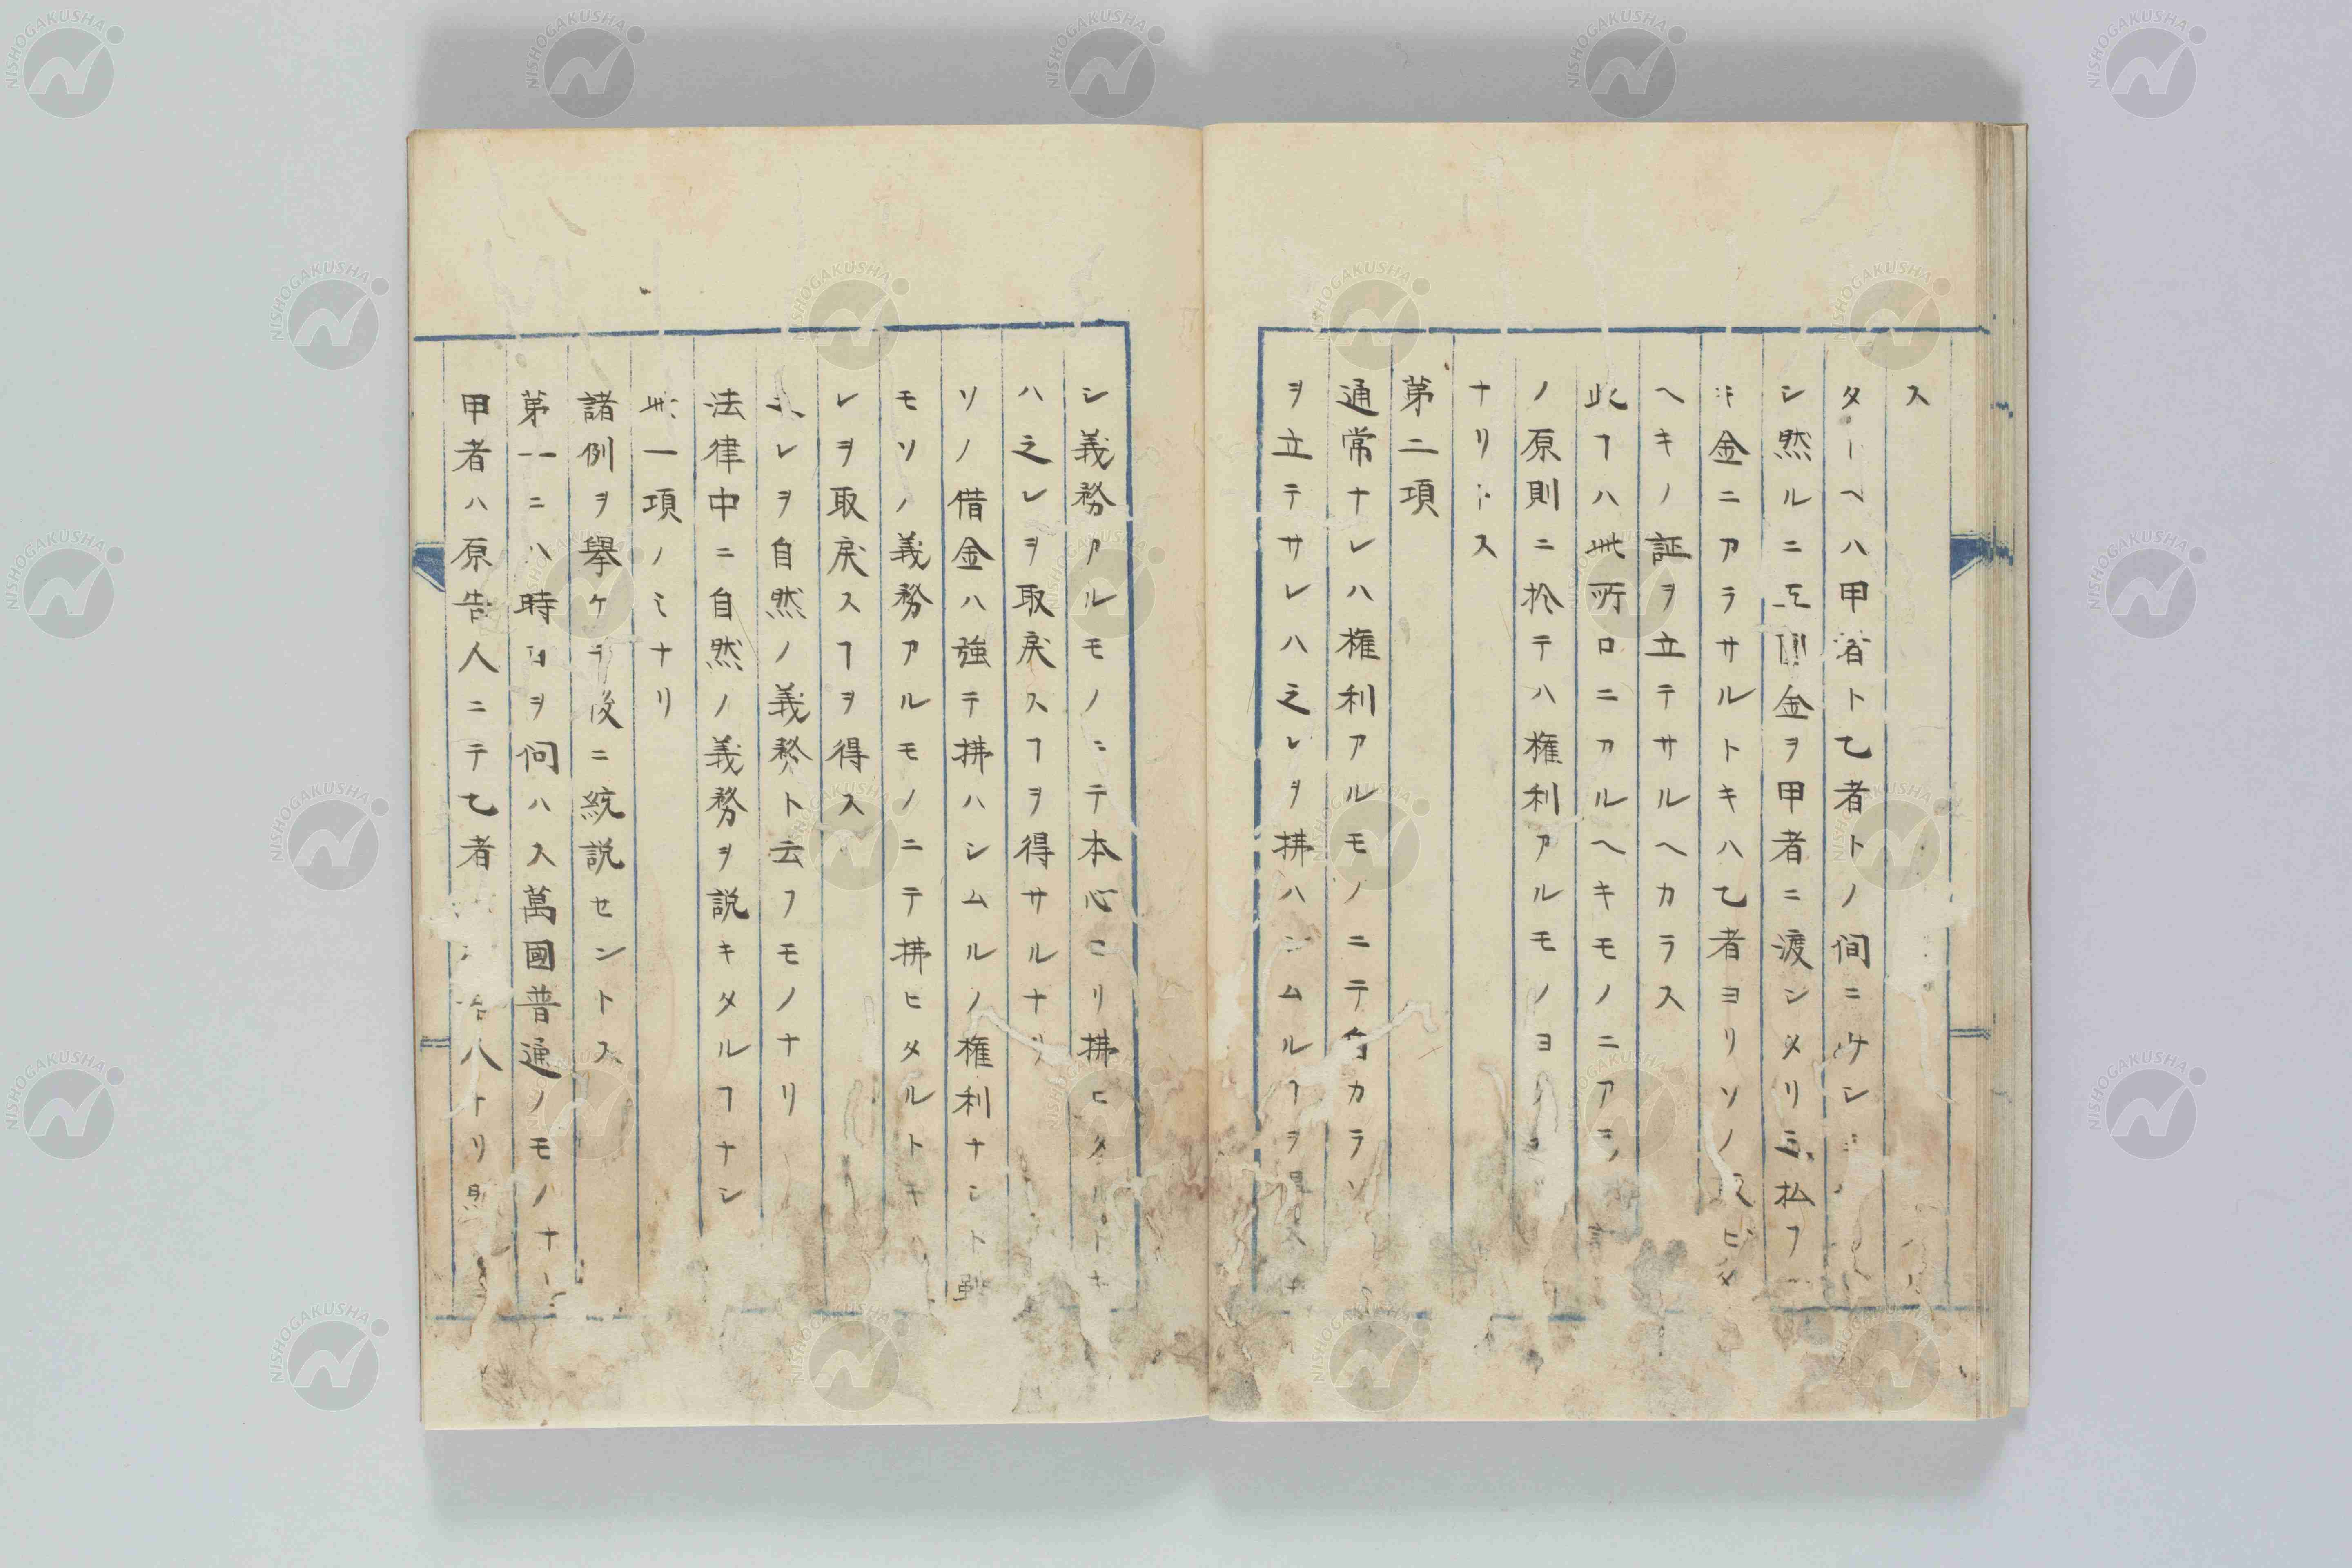 ス
タ ヘハ甲者ト乙者トノ間ニ シ
シ然ルニ 金ヲ甲者ニ渡シメリ 払フ
キ金ニアラサルトキハ乙者ヨリソノ ヒタ
ヘキノ証ヲ立テサルヘカラス
此ヿハ此所ロニアルヘキモノニアラ
ノ原則ニ於テハ権利アルモノヨリ
ナリトス
第二項
通常ナレハ権利アルモノニテ カラ
ヲ立テサレハ之レヲ拂ハシムルヿヲ得ス
シ義務アルモノニテ本心ヨリ拂ヒタルトキ
ハ之レヲ取戻スヿヲ得サルナリ
ソノ借金ハ強テ拂ハシムルノ権利ナシト雖
モソノ義務アルモノニテ拂ヒタルトキ
レヲ取戻スヿヲ得ス
之レヲ自然ノ義務ト云フモノナリ
法律中ニ自然ノ義務ヲ説キタルヿナシ
此一項ノミナリ
諸例ヲ擧ケテ後ニ統説セントス
第一ニハ時日ヲ問ハス萬國普通ノモノナ
甲者ハ原告人ニテ乙者 人ナリ
NISHOGAKUSHA